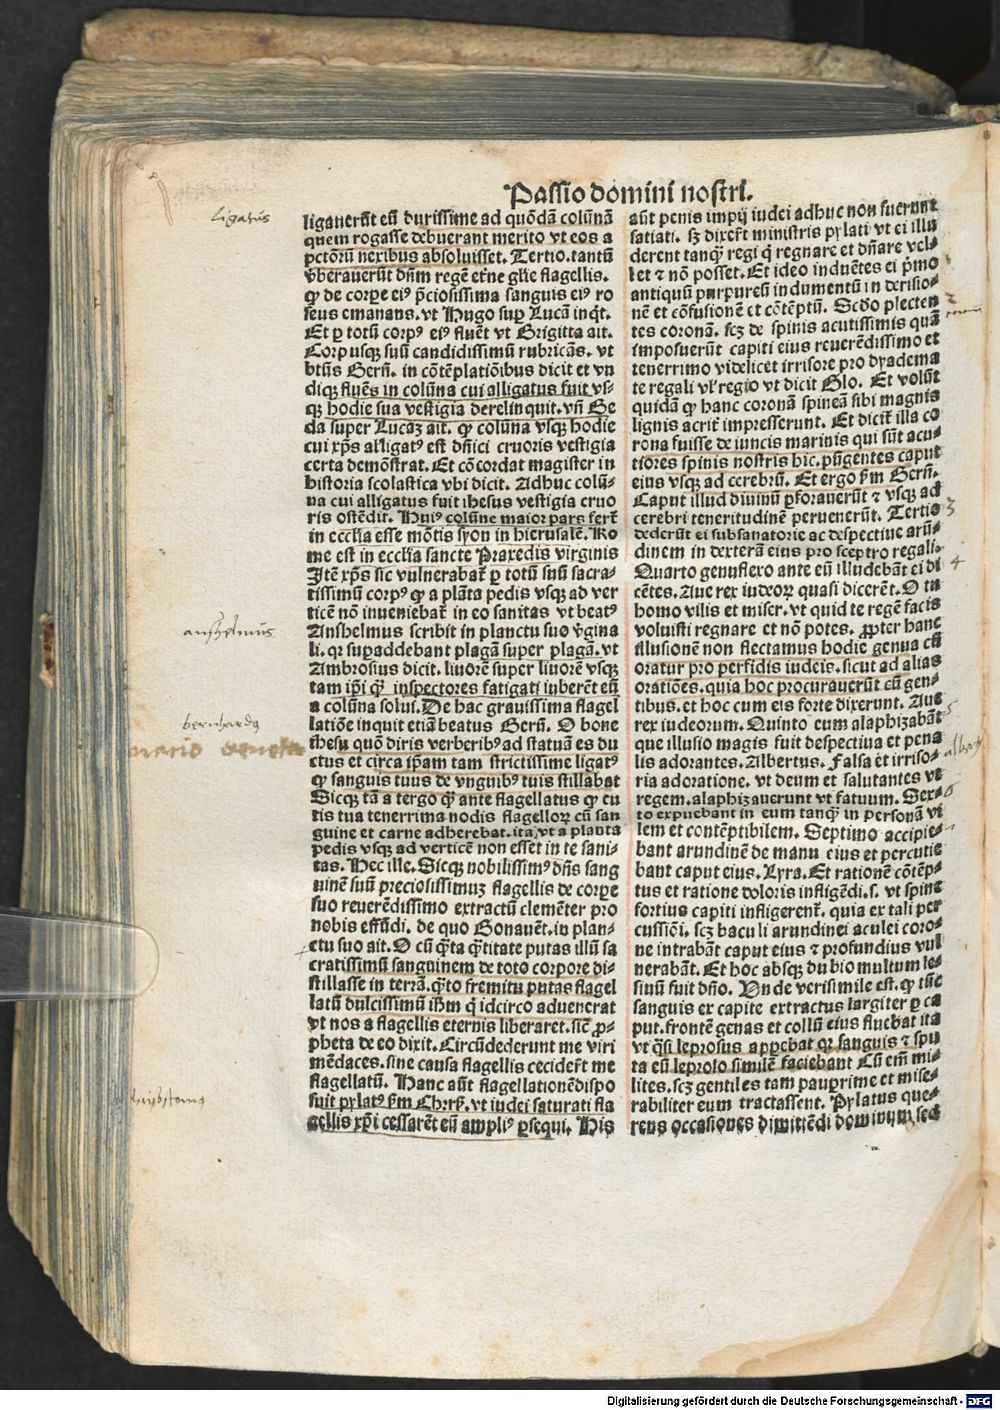 Passio domini nostri.
ligauerūt eū durissime ad quōdā colūnā
quem rogasse debuerant merito vt eos a
pctōrū nexibus absoluisset. Tertio. tantū
v̄berauerūt dn̄m regē et̄ne gl̄ie flagellis.
qꝫ de corpe ei⁹ p̄ciosissima sanguis ei⁹ ro
seus emanans. vt Hugo sup̄ Lucā inq̄t.
Et ꝑ totū corp⁹ ei⁹ fluēt vt Brigitta ait.
Corp usqꝫ suū candidissimū rubricās. vt
btūs Bern̄. in cōtēplatiōibus dicit et vn
diqꝫ fluēs in colūna cui alligatus fuit vs⸗
qꝫ hodie sua vestigia derelinquit. vn̄ Be
da super Lucaꝫ ait. qꝫ colūna vsqꝫ hodie
cui xp̄s alligat⁹ est dn̄ici cruoris vestigia
certa demōstrat. Et cōcordat magister in
historia scolastica vbi dicit. Adhuc colū⸗
na cui alligatus fuit ihesus vestigia cruo
ris ostēdit. Hui⁹ colūne maior pars fert̄
in eccl̄ia esse mōtis syon in hierusalē. Ro
me est in eccl̄ia sancte Praxedis virginis
Itē xp̄s sic vulnerabat̄ ꝑ totū suū sacra⸗
tissimū corp⁹ qꝫ a plāta pedis vsqꝫ ad ver
ticē nō inueniebat̄ in eo sanitas vt beat⁹
Anshelmus scribit in planctu suo v̄gina
li. qꝛ sup̄addebant plagā super plagā. vt
Ambrosius dicit. liuorē super liuorē vsqꝫ
tam ip̄i qꝫ inspectores fatigati iuberēt eū
a colūna solui. De hac grauissima flagel
latiōe inquit etiā beatus Bern̄. O bone
ihesu quō diris verberib⁹ ad statuā es du
ctus et circa ip̄am tam strictissime ligat⁹
qꝫ sanguis tuus de vnguib⁹ tuis stillabat
Sicqꝫ tā a tergo qꝫ ante flagellatus qꝫ cu
tis tua tenerrima nodis flagelloꝝ cū san
guine et carne adherebat. ita vt a planta
pedis vsqꝫ ad verticē non esset in te sani⸗
tas. Hec ille. Sicqꝫ nobilissim⁹ dn̄s sang
uinē suū preciosissimuꝫ flagellis de corpe
suo reuerēdissimo extractū clemēter pro
nobis effūdi. de quo Bonauēt. in plan⸗
ctu suo ait. O cū q̄ta q̄titate putas illū sa
cratissimū sanguinem de toto corpore di⸗
stillasse in terrā. q̄to fremitu putas flagel
latū dulcissimū ih̄m q̄ idcirco aduenerat
vt nos a flagellis eternis liberaret. sic̄ ꝓ⸗
pheta de eo dixit. Circūdederunt me viri
mēdaces. sine causa flagellis cecider̄t me
flagellatū. Hanc aūt flagellationē dispo
suit pylat⁹ ẜm Chrīs̄. vt iudei saturati fla
gellis xp̄i cessarēt eū ampli⁹ ꝑsequi. His
aūt penis impij iudei adhuc non fuerunt
satiati. sꝫ dixer̄t ministris pylati vt ei illu
derent tanqꝫ regi q̄ regnare et dn̄are vel⸗
let ⁊ nō posset. Et ideo induētes ei p̄mo
antiquū purpureū indumentū in derisio⸗
nē et cōfusionē et cōtēptū. Scd̄o plecten
tes coronā. scꝫ de spinis acutissimis quā
imposuerūt capiti eius reuerēdissimo et
tenerrimo videlicet irrisore pro dyadema
te regali vl̄ regio vt dicit Glo. Et volūt
quidā qꝫ hanc coronā spineā sibi magnis
lignis acrit̄ impresserunt. Et dicit̄ illa co
rona fuisse de iuncis marinis qui sūt acu⸗
tiores spinis nostris hic. pūgentes caput
eius vsqꝫ ad cerebrū. Et ergo ẜm Bern̄.
Caput illud diuinū ꝑforauerūt ⁊ vsqꝫ ad
cerebri teneritudinē peruenerūt. Tertio
dederūt ei subsanatorie ac despectiue arū⸗
dinem in dexterā eius pro sceptro regali.
Quarto genuflexo ante eū illudebāt ei di
cētes. Aue rex iudeoꝝ quasi dicerēt. O tu
homo vilis et miser. vt quid te regē facis
voluisti regnare et nō potes. ꝓpter hanc
illusionē non flectamus hodie genua cū
oratur pro perfidis iudeis. sicut ad alias
oratiōes. quia hoc procurauerūt cū gen⸗
tibus. et hoc cum eis forte dixerunt. Aue
rex iudeorum. Quinto eum alaphizabāt
que illusio magis fuit despectiua et pena
lis adorantes. Albertus. Falsa et irriso⸗
ria adoratione. vt deum et salutantes vt
regem. alaphizauerunt vt fatuum. Sex⸗
to expuebant in eum tanqꝫ in personā vi
lem et contēptibilem. Septimo accipie⸗
bant arundinē de manu eius et percutie
bant caput eius. Lyra. Et rationē cōtēp⸗
tus et ratione doloris infligēdi. s. vt spine
fortius capiti infligerent̄. quia ex tali per
cussiōi. scꝫ baculi arundinei aculei coro⸗
ne intrabāt caput eius ⁊ profundius vul
nerabāt. Et hoc absqꝫ dubio multum le⸗
siuū fuit dn̄o. Vnde verisimile est. qꝫ tūc
sanguis ex capite extractus largiter ꝑ ca
put. frontē genas et collū eius fluebat ita
vt q̄si leprosus apꝑebat qꝛ sanguis ⁊ spu
ta eū leproso similē faciebant Cū em̄ mi⸗
lites. scꝫ gentiles tam pauꝑrime et mise⸗
rabiliter eum tractassent. Pylatus que⸗
rens occasiones dimitēdi dominum sed
ligatus
anshelmus
bernhardus
3
4
5
6
Digitalisierung gefördert durch die Deutsche Forschungsgemeinschaft - DFG